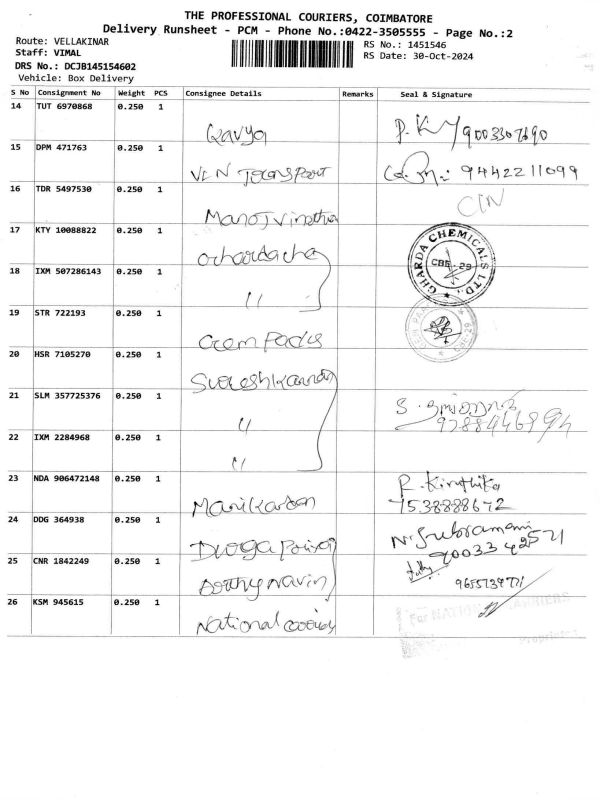 THE PROFESSIONAL COURIERS, COIMBATORE
Delivery Runsheet - PCM - Phone No.:0422-3505555 - Page No.:2
Route: VELLAKINAR
Staff: VIMAL
DRS No.: DCJB145154602
Vehicle: Box Delivery
RS No.: 1451546
RS Date: 30-Oct-2024
S No Consignment No Weight PCS Consignee Details Remarks Seal & Signature
14 TUT 6970868 0.250 1
Kavya P. K 9003307690
15 DPM 471763 0.250 1
VLN Transport 9442211099
16 TDR 5497530 0.250 1
Manoj vinotha
17 KTY 10088822 0.250 1
GHARDA CHEMICALS LTD.,
CBE-29
18 IXM 507286143 0.250 1
"
19 STR 722193 0.250 1
Gem Packs
20 HSR 7105270 0.250 1
Sureshkannan
21 SLM 357725376 0.250 1
"
22 IXM 2284968 0.250 1
"
23 NDA 906472148 0.250 1
Manikandan R. Kiruthika
7538888672
24 DDG 364938 0.250 1
Durga N. Subramani
25 CNR 1842249 0.250 1
Navin
26 KSM 945615 0.250 1
National
For NATIONAL CARRIERS
Proprietor